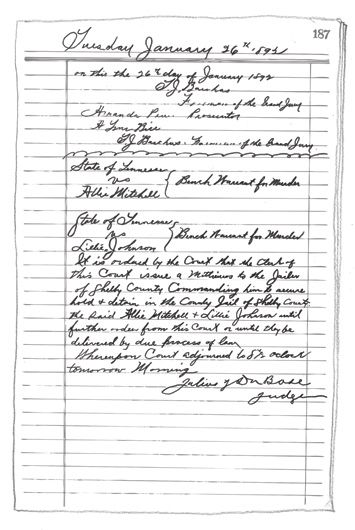 187
Tuesday January 26th 1892
on this the 26th day of January 1892
Foreman of the Grand Jury
Amanda Prosecutor
A True Bill
Foreman of the Grand Jury
State of Tennessee
vs
Allie Mitchell
Bench Warrant for Murder
State of Tennessee
vs
Lillie Johnson
Bench Warrant for Murder
It is ordered by the Court that the Clerk of
this Court issue a Mittimus to the Jailer
of Shelby County Commanding him to secure
hold & detain in the County Jail of Shelby County
the said Allie Mitchell & Lillie Johnson until
further order from this Court or until they be
delivered by due process of law
Whereupon Court adjourned to 8½ oclock
tomorrow Morning
Julius J DuBose
Judge